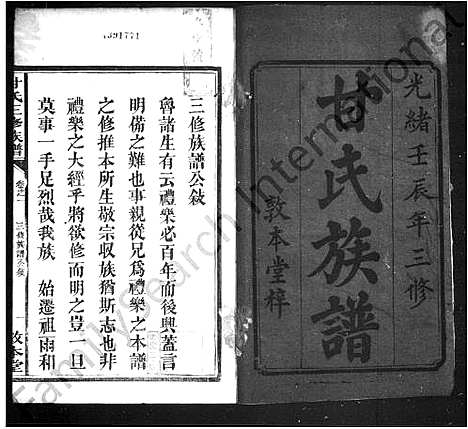 光緒壬辰年三修
甘氏族譜
敦本堂梓
1391771
三修族譜公敘
魯諸生有云禮樂必百年而後興蓋言
明備之難也事親從兄為禮樂之本譜
之修推本所生敬宗収族猶斯志也非
禮樂之大經乎將欲修而明之豈一旦
莫事一手足烈哉我族 始遷祖雨和
甘氏三修族譜
卷之一
三修族譜公敘
一
敦本堂
FamilySearch International